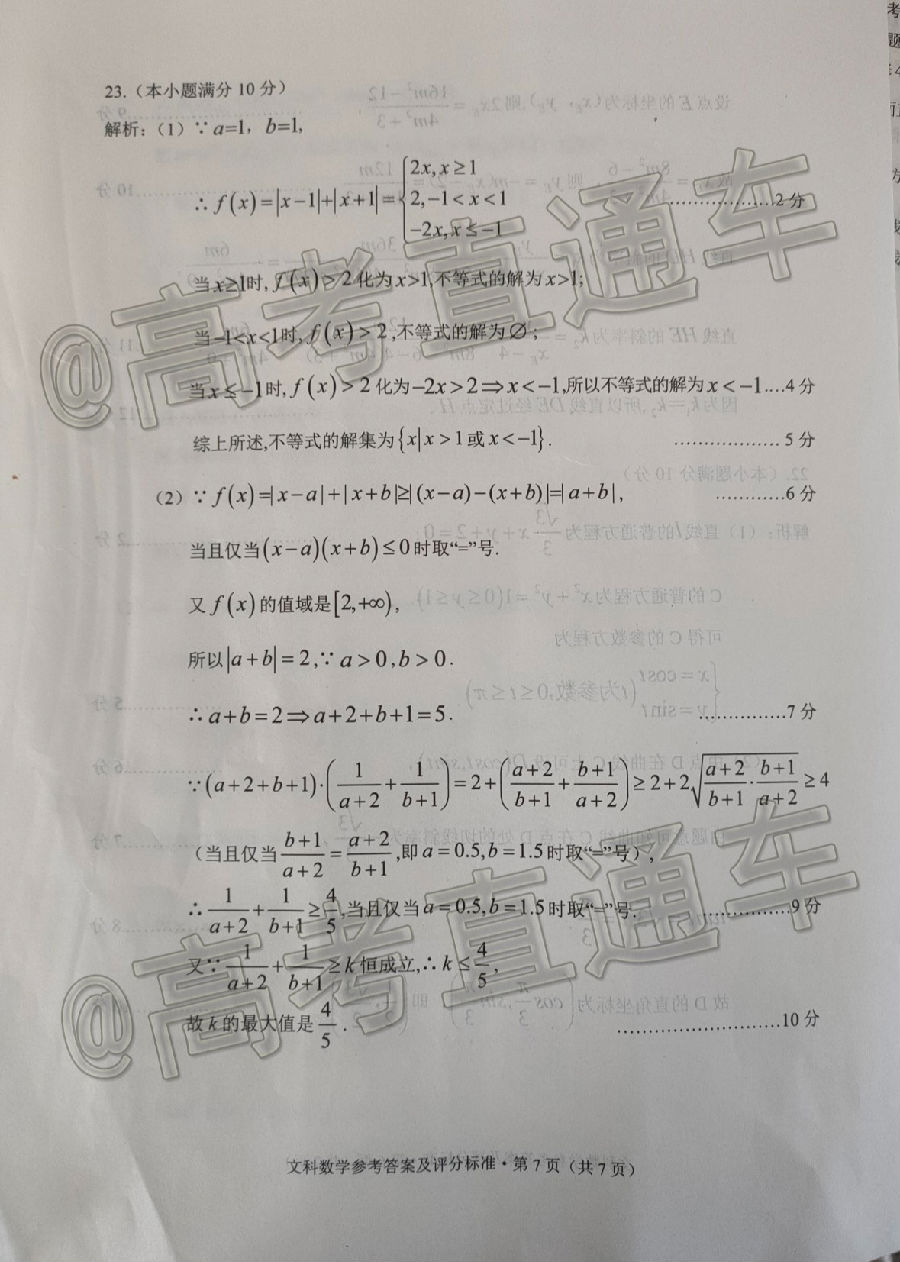 23.（本小题满分 10 分）
解析：（1）∵ a=1，b=1,
∴ f(x)=|x−1|+|x+1|={2x, x≥1
2, −1<x<1
−2x, x≤−1 ..................2 分
当x≥1时, f(x)>2 化为x>1,不等式的解为x>1;
当−1<x<1时, f(x)>2 ,不等式的解为∅；
当x≤−1时, f(x)>2 化为−2x>2⇒x<−1,所以不等式的解为x<−1....4 分
综上所述,不等式的解集为{x|x>1或x<−1}. .................. 5 分
（2）∵ f(x)=|x−a|+|x+b|≥|(x−a)−(x+b)|=|a+b|, ............6 分
当且仅当(x−a)(x+b)≤0时取“=”号.
又 f(x)的值域是[2,+∞),
所以|a+b|=2,∵ a>0,b>0.
∴ a+b=2⇒a+2+b+1=5. ...............7 分
∵(a+2+b+1)·(1/(a+2)+1/(b+1))=2+((a+2)/(b+1)+(b+1)/(a+2))≥2+2√((a+2)/(b+1)·(b+1)/(a+2))≥4
（当且仅当(b+1)/(a+2)=(a+2)/(b+1),即a=0.5,b=1.5时取“=”号）,
∴1/(a+2)+1/(b+1)≥4/5,当且仅当a=0.5,b=1.5时取“=”号. ...............9 分
又∵1/(a+2)+1/(b+1)≥k恒成立,∴k≤4/5,
故k的最大值是4/5. ............................10 分
文科数学参考答案及评分标准·第 7 页（共 7 页）
@高考直通车
@高考直通车